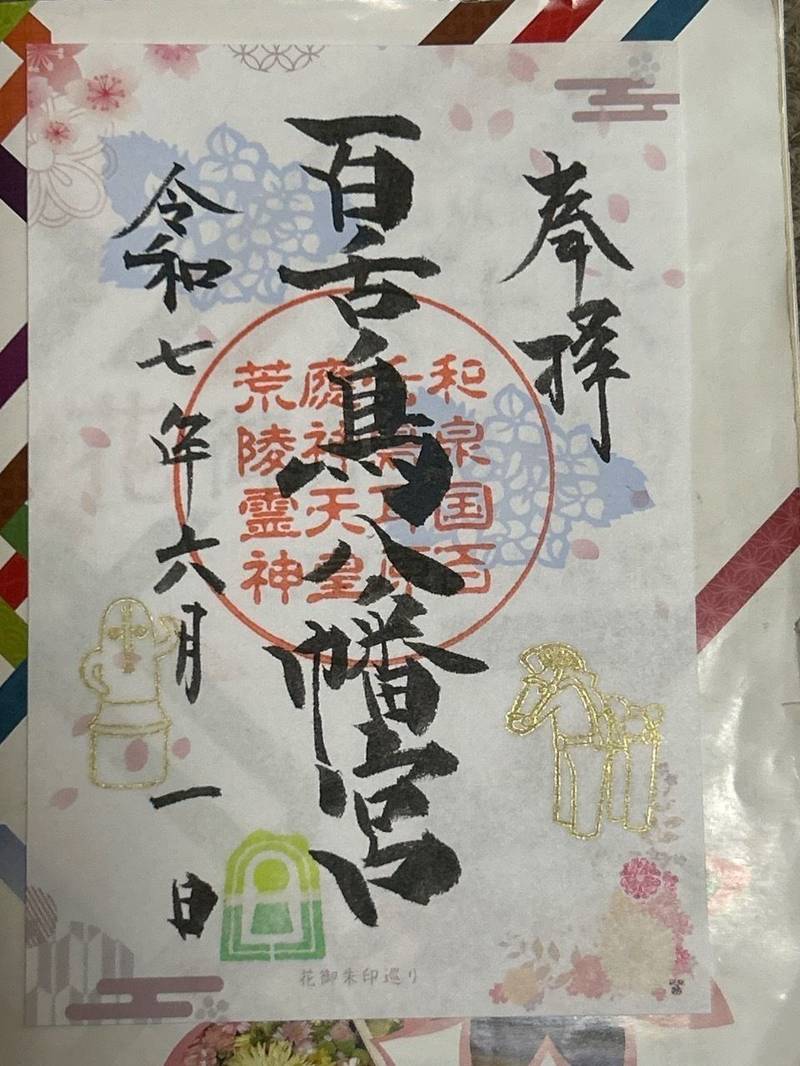 奉拝
百舌鳥八幡宮
和泉国百
舌鳥耳原
應神天皇
荒陵霊神
令和七年六月一日
花御朱印巡り